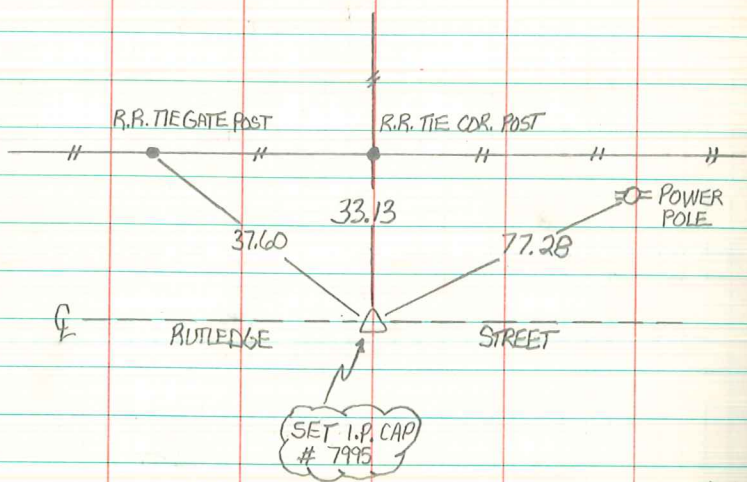 R.R. TIE GATE POST
R.R. TIE COR. POST
33.13
POWER
POLE
37.60
77.28
℄
RUTLEDGE
STREET
SET I.P. CAP
# 7995